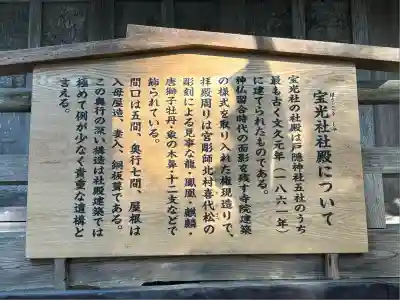 宝光社社殿について
ほうこうしゃ
宝光社の社殿は戸隠神社五社のうち
最も古く文久元年（一八六一年）
に建てられたものである。
神仏習合時代の面影を残す寺院建築
の様式を取り入れた権現造りで、
拝殿周りは宮彫師北村喜代松の
彫刻による見事な龍・鳳凰・麒麟
唐獅子牡丹・象の木鼻・十二支などで
飾られている。
間口は五間、奥行七間、屋根は
入母屋造、妻入、銅板葺である。
この奥行の深い構造は社殿建築では
極めて例が少なく貴重な遺構と
言える。